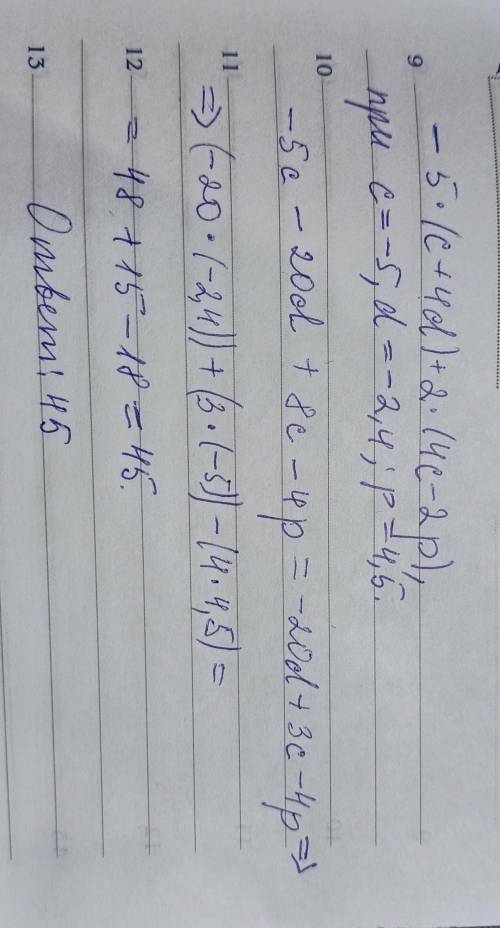 9 - 5·(c+4d)+2·(4c-2p),
при c=-5, d=-2,4; p=4,5.
10 -5c - 20d + 8c - 4p = -20d+3c-4p=>
11 => (-20·(-2,4))+(3·(-5))-(4·4,5)=
12 = 48 + 15 - 18 = 45.
13 Ответ: 45